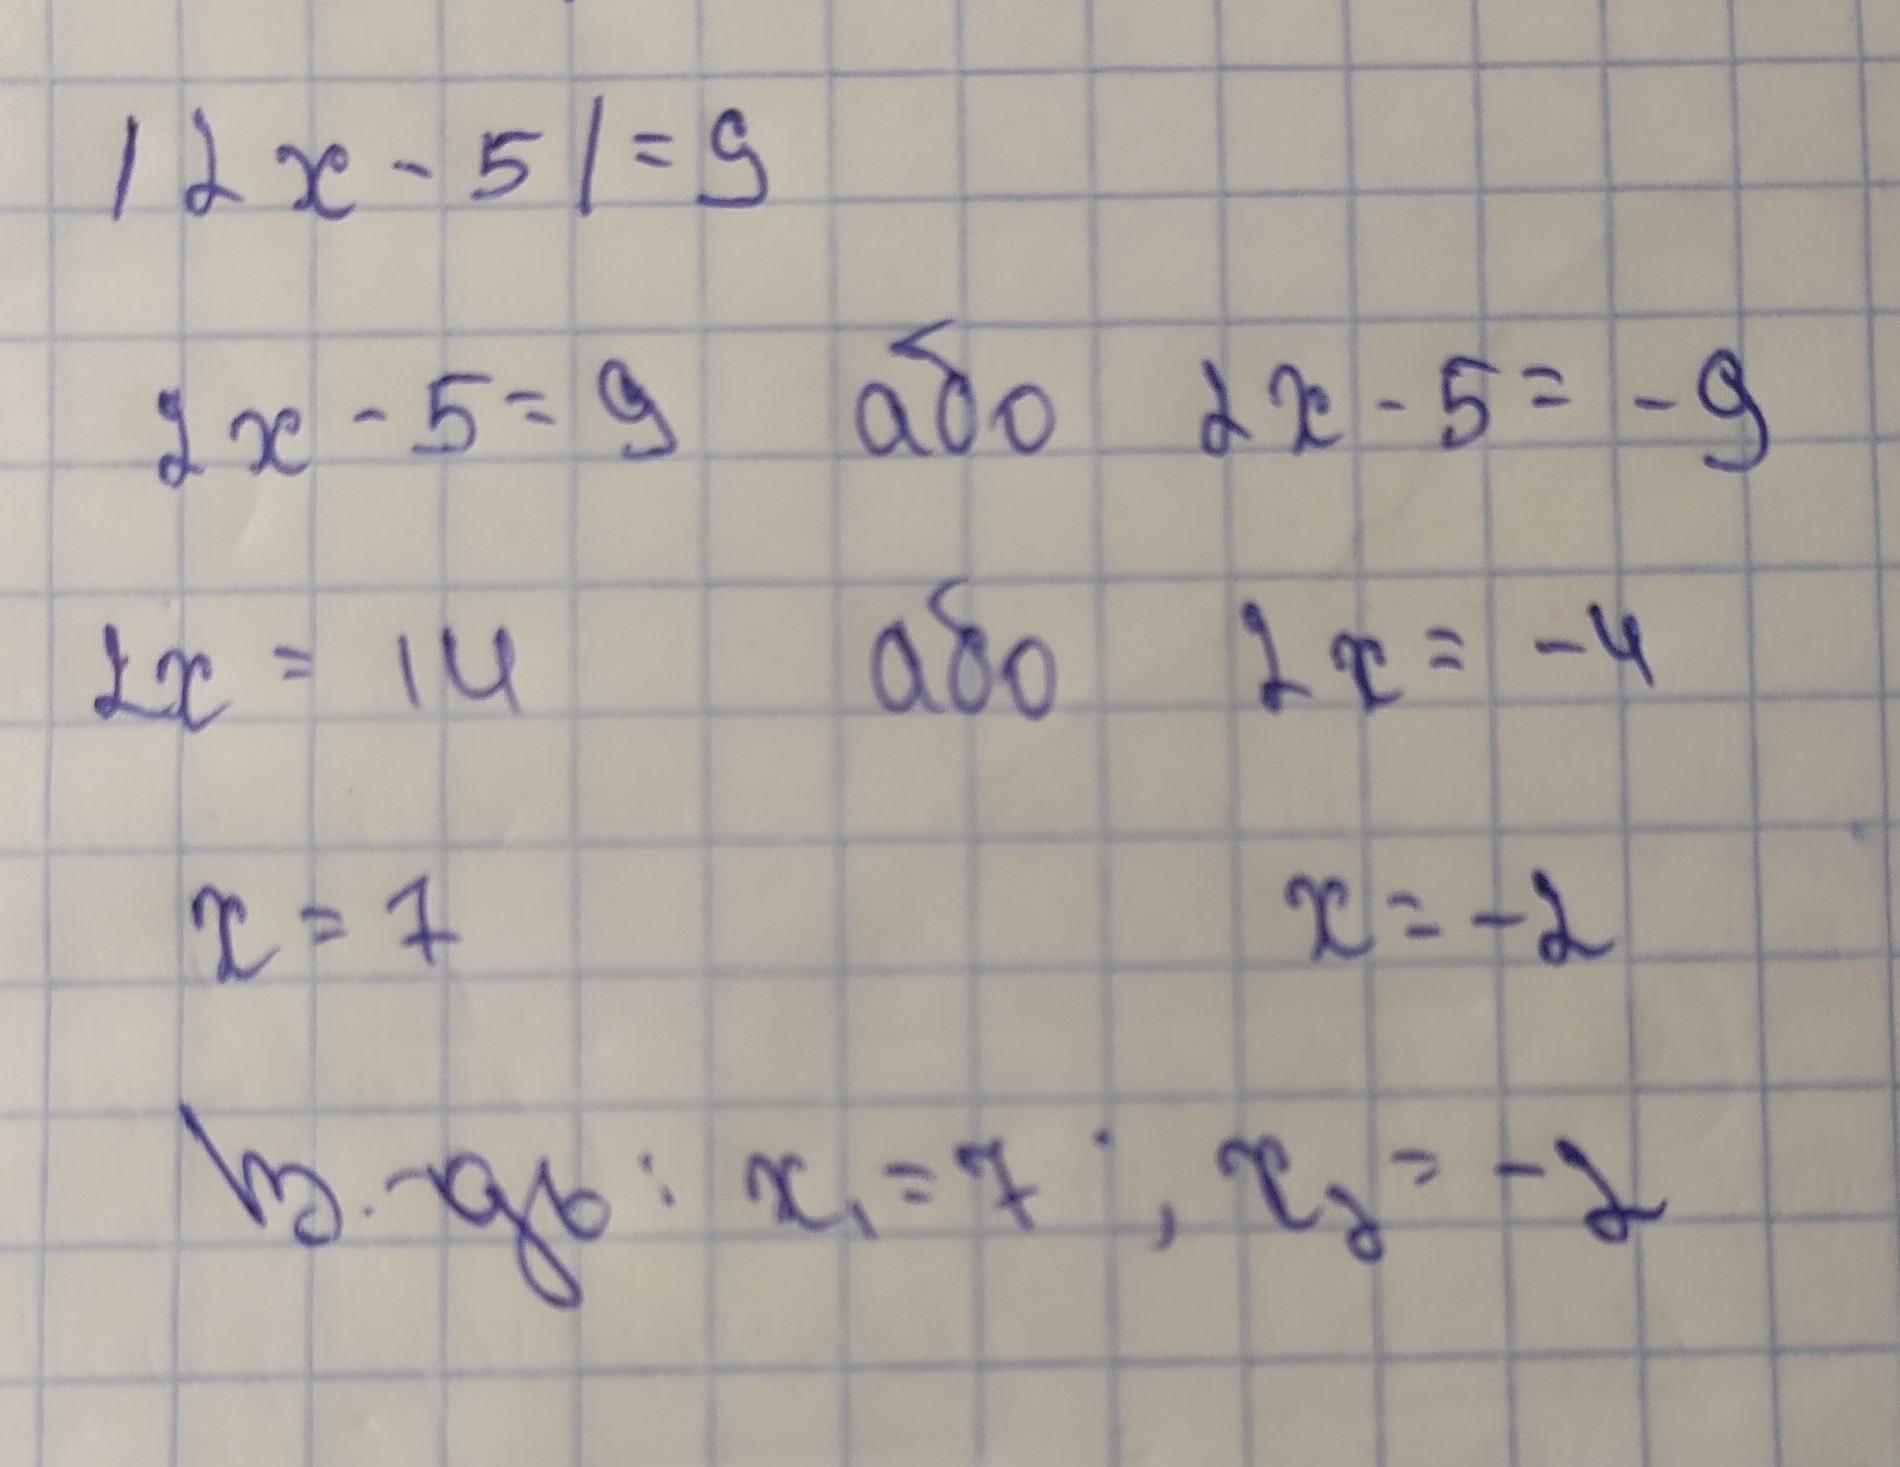 |2x - 5| = 9
2x - 5 = 9 або 2x - 5 = -9
2x = 14 або 2x = -4
x = 7 x = -2
В.-дь: x₁ = 7 ; x₂ = -2